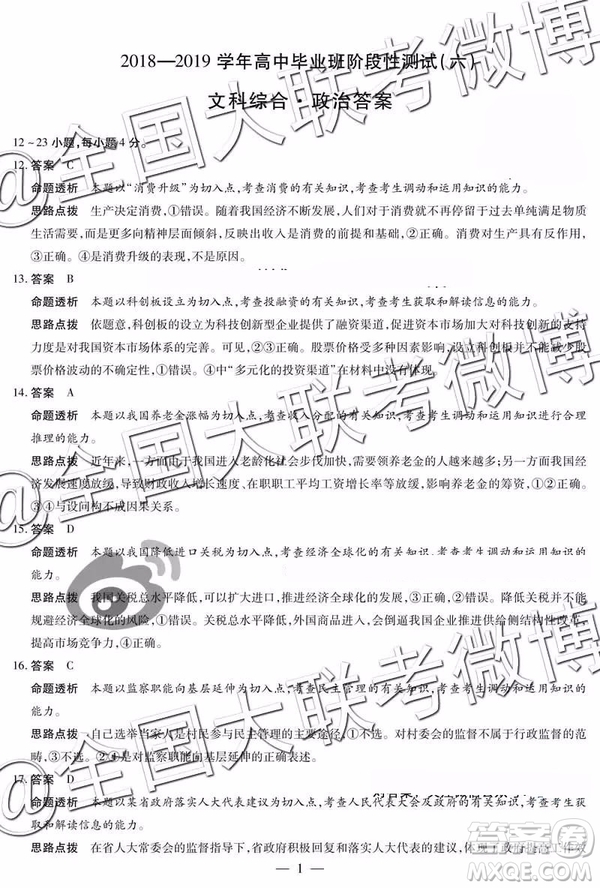 2018—2019 学年高中毕业班阶段性测试(六)
文科综合·政治答案
12~23小题,每小题4分。
12. 答案 C
命题透析 本题以“消费升级”为切入点,考查消费的有关知识,考查考生调动和运用知识的能力。
思路点拨 生产决定消费,①错误。随着我国经济不断发展,我国消费者的消费需求不再停留于过去单纯满足物质的需求,而是更多向精神层面倾斜,反映出收入会影响消费,②正确。消费对生产具有反作用,③正确。④是消费升级的表现,不是原因。
13. 答案 B
命题透析 本题以科创板设立为切入点,考查投融资的有关知识,考查考生获取和解读信息的能力。
思路点拨 依题意,科创板的设立为科技创新型企业提供了融资渠道,促进资本市场加大对科技创新的支持力度是对我国资本市场体系的完善。①③可选。股票价格受多种因素影响,科创板并不能减少股票价格大幅波动,②错误。④中“多元化的投资渠道”在材料中没有体现。
14. 答案 A
命题透析 本题以我国养老金涨幅为切入点,考查收入分配的有关知识,考查考生调动和运用知识进行合理
推理的能力。
思路点拨 近年来,一方面由于我国进入老龄化社会步伐加快,需要领养老金的人越来越多;另一方面我国经
济发展速度放缓,导致财政收入增长速度、在职职工平均工资增长率等放缓,可能影响养老金的筹资,①②正确。③④与设问构不成因果关系。
15. 答案 D
命题透析 本题以我国降低进口关税为切入点,考查经济全球化的有关知识,考查考生获取和解读信息的
能力。
思路点拨 我国关税总水平降低,可以扩大进口,推动经济全球化的发展,①错误。②不选。降低关税并不能
规避经济全球化的风险,①错误。关税总水平降低,外国商品进入,会倒逼我国企业推进供给侧结构性改革,
提高市场竞争力,④正确。
16. 答案 C
命题透析 本题以监察职能向基层延伸为切入点,考查民主管理的有关知识,考查考生调动和运用知识的
能力。
思路点拨 自己选举当家人是村民参与民主管理的主要途径,①错误。对村委会的监督不属于行政监督的范
畴,③不选。②④是对监察职能向基层延伸的正确认识。
17. 答案 D
命题透析 本题以某省政府落实人大代表建议为切入点,考查
思路点拨 在省人大常委会的监督指导下,省政府积极回复和落实人大代表的建议,体现了政治监督工作效
— 1 —
答案圈
MXQE.COM
@全国大联考微博
@全国大联考微博
@全国大联考微博